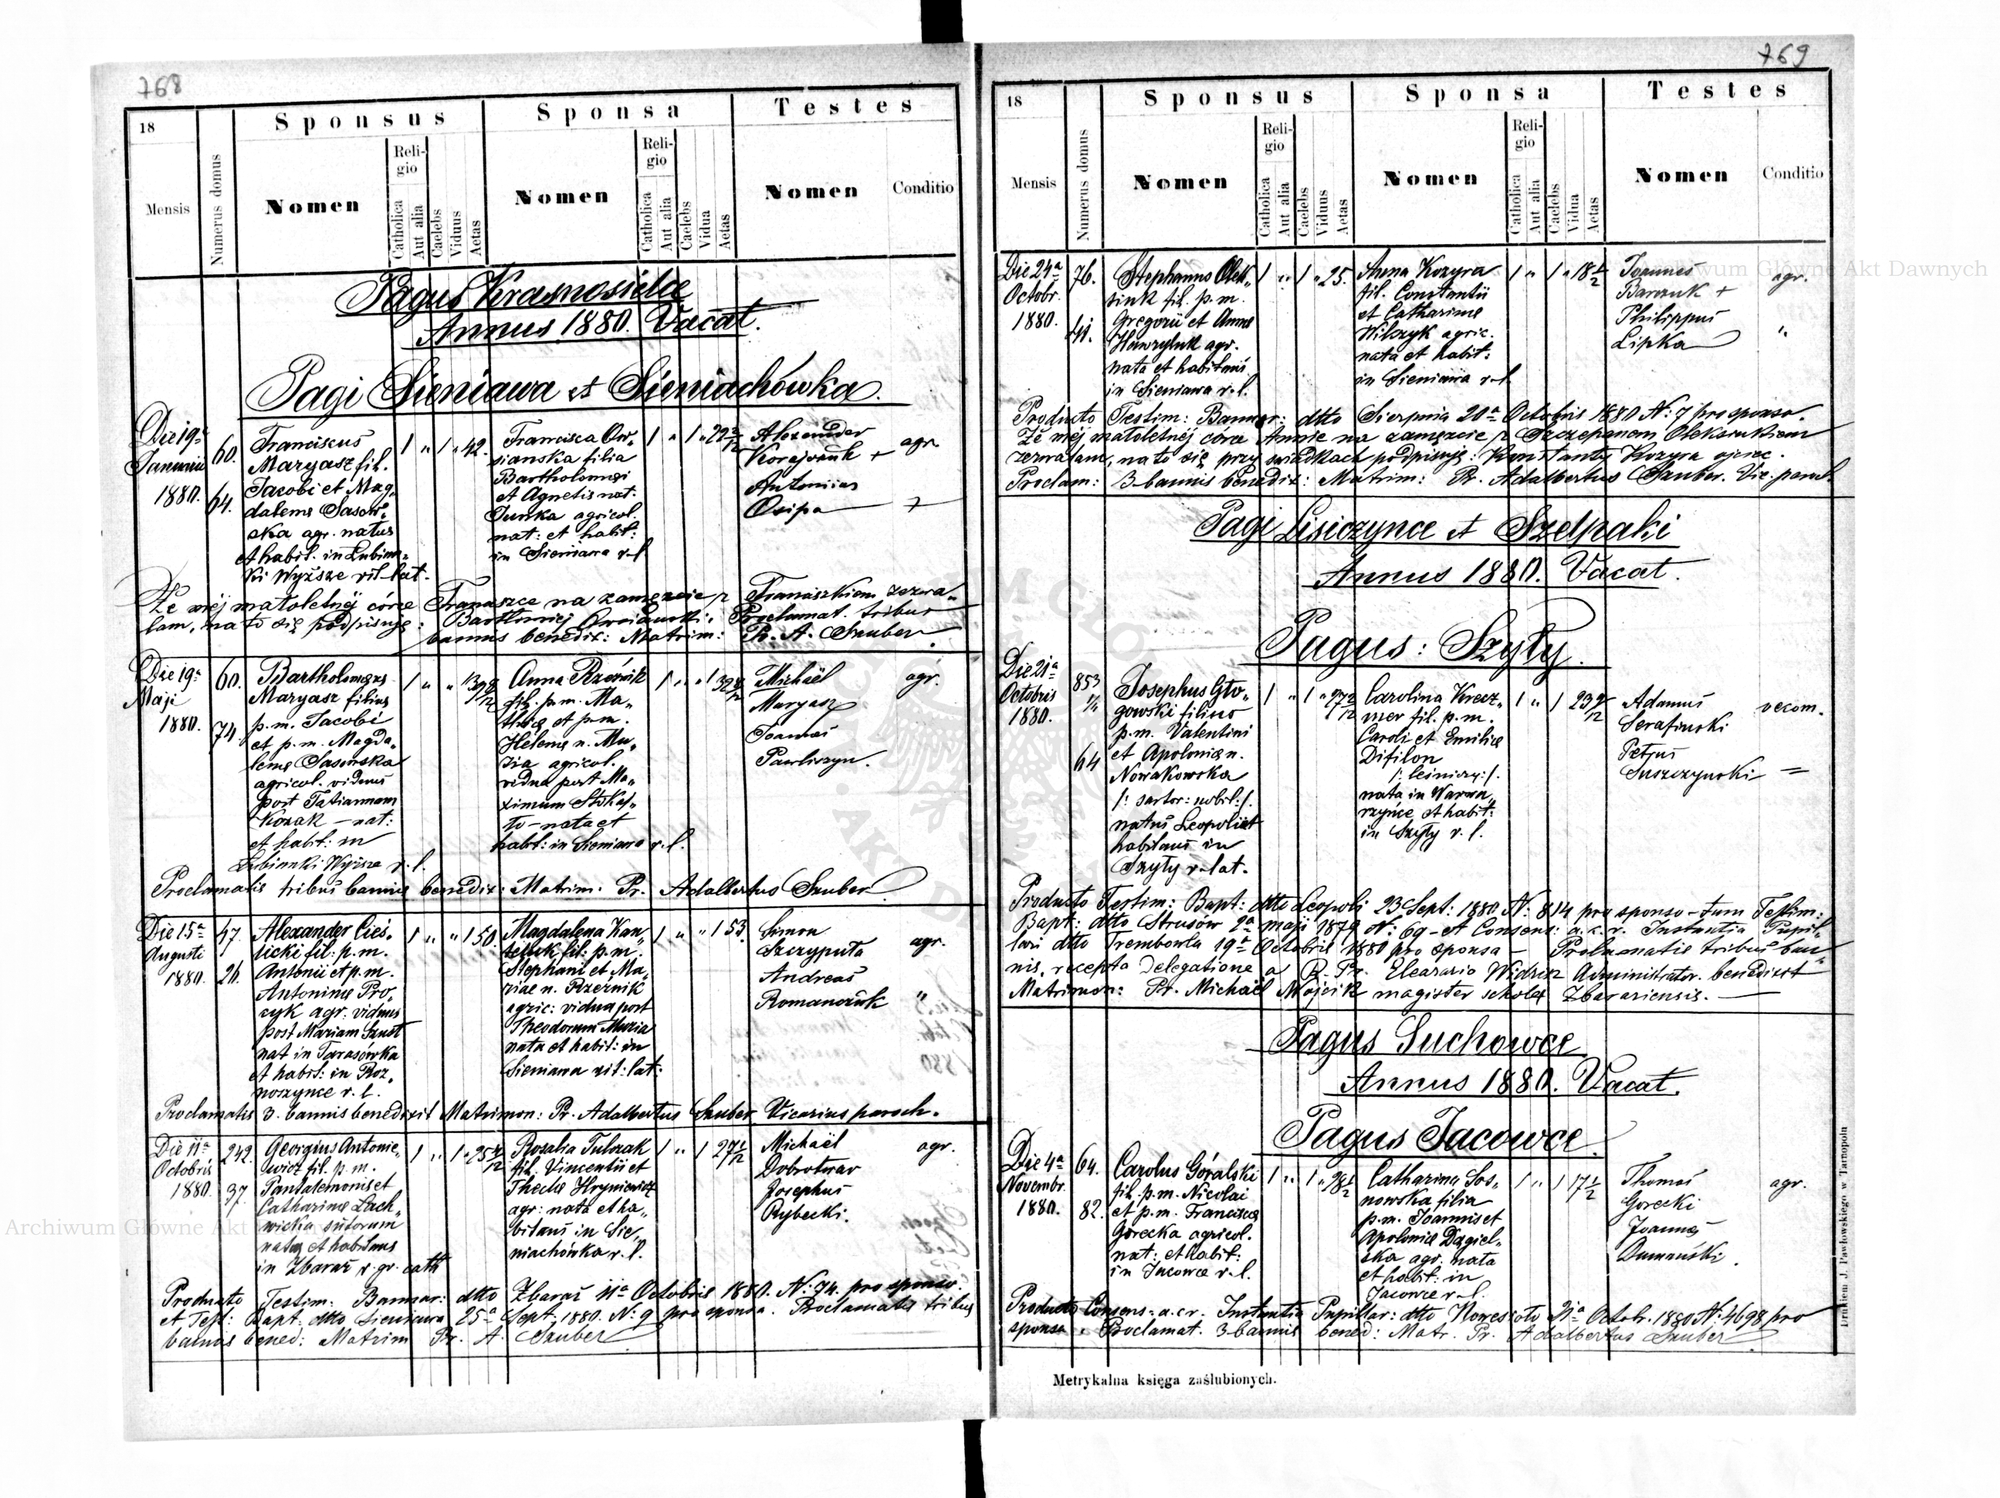 768
Sponsus
Sponsa
Testes
18
Mensis
Numerus domus
Nomen
Religio
Catholica
Aut alia
Caelebs
Viduus
Aetas
Nomen
Religio
Catholica
Aut alia
Caelebs
Vidua
Aetas
Nomen
Conditio
Pagus Krasnosielce
Annus 1880. Vacat.
Pagi Sieniawa et Sieniachówka.
Die 19a
Januarii
1880.
60.
64.
Franciscus
Maryasz fil.
Jacobi et Mag-
dalenae
ska agr. natus
et habit. in Lubian-
ki Wyższe rit. lat.
1 " 1 " 42.
Francisca
sianska filia
Bartholomaei
et Agnetis nat.
agricol.
nat: et habit:
in Sieniawa r. l.
1 " 1 " 22
Alexander
+
Antonius
Osipa
agr.
+
Że mej małoletniej córce Franciszce na zamęzcie z Franciszkiem zezwa-
lam, na to się podpisuję: Bartłomiej Proclamat. tribus
bannis benedix: Matrim: Pr. A. Szuber.
Die 19a
Maji
1880.
60.
74.
Bartholomaeus
Maryasz filius
p. m. Jacobi
et p. m. Magda-
lenae
agricol. viduus
post Tatiannam
Kozak – nat:
et habit: in
Lubianki Wyższe r. l.
1 " " 1
Anna
fil. p. m. Ma-
thiae et p. m.
Helenae n. Mu-
zia agricol.
vidua post Ma-
ximum Stoka-
to – nata et
habit: in Sieniawa r. l.
1 " " 1
Michaël
Maryasz
Joannes
Pawliszyn.
agr.
Proclamatis tribus bannis benedix: Matrim: Pr. Adalbertus Szuber.
Die 15a
Augusti
1880.
47.
26.
Alexander Cieś-
licki fil: p. m.
Antonii et p. m.
Antoninae Pro-
cyk agr. viduus
post Mariam
nat in Tarasówka
et habit: in Roz-
noszynce r. l.
1 " " 1 50.
Magdalena
fil: p. m.
Stephani et Ma-
riae n. Rzeznik
agric: vidua post
Theodorum Muzia
nata et habit: in
Sieniawa rit: lat.
1 " " 1 53.
Simon
Szczyputa
Andreas
Romanczuk
agr.
"
Proclamatis 3. bannis benedixit Matrimon: Pr. Adalbertus Szuber Vicarius paroch.
Die 11a
Octobris
1880.
242.
37.
Georgius Antonie-
wicz fil. p. m.
Pantalemonis et
Catharinae Lach-
wicka sutorum
natus et habitans
in Zbaraż r. gr. cath
1 " 1 " 25
Rosalia Tulczak
fil. Vincentii et
Theclae Hryniewicz
agr: nata et ha-
bitans in Sie-
niachówka r. l.
1 " 1 27
Michaël
Dobrotwar
Josephus
Rybecki.
agr.
Producto Testim: Bannor: dtto Zbaraż 11a Octobris 1880. N: 74. pro sponso
et Test: Bapt: dtto Sieniawa 25a Sept. 1880. N: 9 pro sponsa. Proclamatis tribus
bannis bened: Matrim Pr. A. Szuber
769
Sponsus
Sponsa
Testes
18
Mensis
Numerus domus
Nomen
Religio
Catholica
Aut alia
Caelebs
Viduus
Aetas
Nomen
Religio
Catholica
Aut alia
Caelebs
Vidua
Aetas
Nomen
Conditio
Die 24a
Octobr.
1880.
76.
41.
Stephanus Olek-
siuk fil. p. m.
Gregorii et Annae
Hawryluk agr.
nata et habitans
in Sieniawa r. l.
1 " 1 " 25.
Anna Kozyra
fil. Constantii
et Catharinae
Wilczyk agric.
nata et habit:
in Sieniawa r. l.
1 " 1 " 18 1/2
Joannes
Barczuk +
Philippus
Lipka
agr.
"
Producto Testim: Bannor: dtto Sierpnia 20a Octobris 1880 N: 7 pro sponso.
Że mej małoletniej córce Annie na zamęzcie z Szczepanem Oleksiukiem
zezwalam, na to się przy świadkach podpisuję: Konstanty Kozyra ojciec.
Proclam: 3 bannis benedix: Matrim: Pr. Adalbertus Szuber. Vic. paroch.
Pagi Lisiczynce et Szelpaki
Annus 1880. Vacat.
Pagus: Szyły.
Die 21a
Octobris
1880.
853
64
Josephus Gło-
gowski filius
p. m. Valentini
et Apoloniae n.
Nowakowska
/: sartor: nobil: /.
natus Leopoli et
habitans in
Szyły r. lat.
1 " 1 " 27
Carolina Krecz-
mer fil. p. m.
Caroli et Emiliae
Difilon
/: leśniczy: /.
nata in Warwa-
ryńce et habit:
in Szyły r. l.
1 " 1 23
Adamus
Serafinski
Petrus
Suszczynski
vecom.
=
Producto Testim: Bapt: dtto Leopoli 23 Sept: 1880 N: 814 pro sponso – tum Testim:
Bapt: dtto Strusów 2a maji 1879 N: 69 – et Consens: a. c. r. Instantia Pupil-
lari dtto Trembowla 19a Octobris 1880 pro sponsa – Proclamatis tribus ban-
nis, recepta Delegatione a R. Pr. Eleazario Administrator. benedixit
Matrimon: Pr. Michaël Wojcik magister scholae Zbarasiensis.
Pagus Suchowce
Annus 1880. Vacat.
Pagus Jacowce.
Die 4a
Novembr.
1880.
64.
82.
Carolus Góralski
fil. p. m. Nicolai
et p. m. Franciscae
Gorecka agricol.
nat: et habit:
in Jacowce r. l.
1 " 1 " 28 1/2
Catharina Sos-
nowska filia
p. m. Joannis et
Apoloniae Dzgiel-
ska agr. nata
et habit: in
Jacowce r. l.
1 " 1 17 1/2
Thomas
Gorecki
Joannes
Dumański.
agr.
Producto Consens: a. c. r. Instantia Pupillar: dtto Nowesioło 21a Octobr. 1880 N: 4698 pro
sponsa. Proclamat. 3 bannis bened: Matr. Pr. Adalbertus Szuber.
Metrykalna księga zaślubionych.
Drukiem J. Pawłowskiego w Tarnopolu
Archiwum Główne Akt Dawnych
Archiwum Główne Akt Dawnych